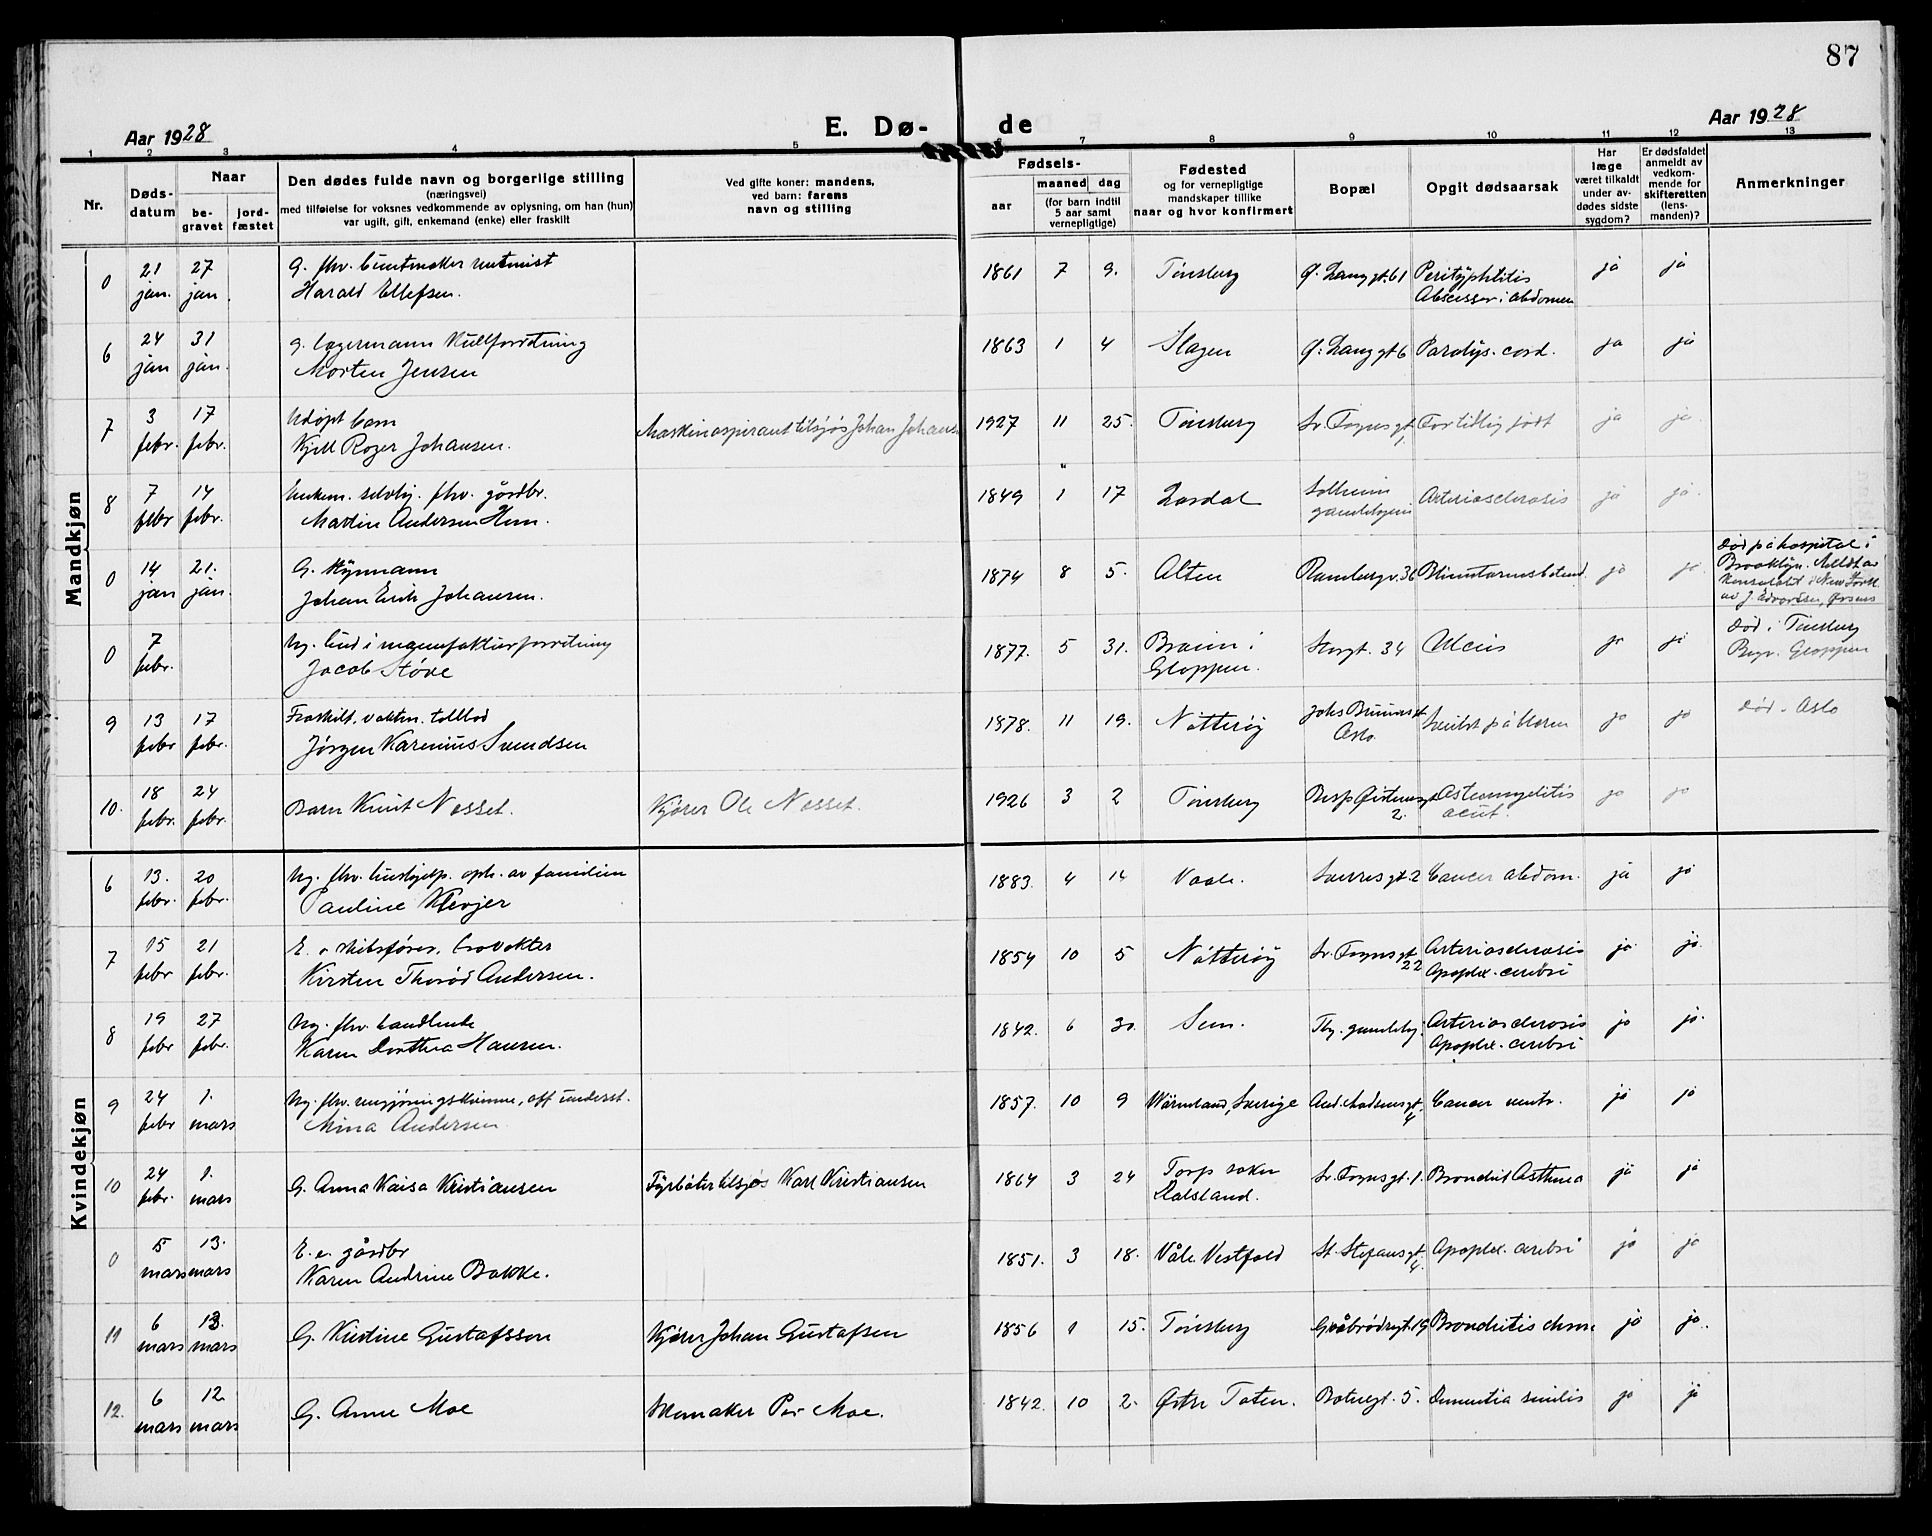 87
Aar 1928
E. Dø-
de
Aar 1928
1 2 3 4 5 7 8 9 10 11 12 13
Nr.
Døds-
datum
Naar
be-
gravet
jord-
fæstet
Den dødes fulde navn og borgerlige stilling
(næringsvei)
med tilføielse for voksnes vedkommende av oplysning, om han (hun)
var ugift, gift, enkemand (enke) eller fraskilt
Ved gifte koner: mandens,
ved barn: farens
navn og stilling
Fødsels-
aar
maaned dag
(for barn indtil
5 aar samt
vernepligtige)
Fødested
og for vernepligtige
mandskaper tillike
naar og hvor konfirmert
Bopæl
Opgit dødsaarsak
Har
læge
været tilkaldt
under av-
dødes sidste
sygdom?
Er dødsfaldet
anmeldt av
vedkom-
mende for
skifteretten
(lens-
manden)?
Anmerkninger
Mandkjøn
0 21 jan. 27 jan. G. fhv. buntmaker
Harald Ellefsen. 1861 7 9. Tønsberg Ø. Langgt. 61 Perityphlitis ja ja
Abscesser i abdomen
6 24 jan 31 jan. G. lagermann Kullforretning
Morten Jensen 1863 1 4 Slagen Ø. Langgt 6 Paralys. cord. ja ja
7 3 febr. 17 febr. Udøpt barn
Kjell Roger Johansen. Maskinaspirant tilsjøs Johan Johansen 1927 11 25. Tønsberg Sv. Foynsgt. 1 For tidlig født ja ja
8 7 febr 14 febr. Enkem. selvbj. fhv. gårdbr.
Martin Andersen Hem. 1849 1 17 Lardal Solheim
gamlehjem Arteriosclerosis ja ja.
0 14 jan 21. jan. G. styrmann
Johan Erik Johansen. 1874 8 5. Alten Rambergv. 36 Blindtarmsbetend. ja ja
Død på hospital i
Brooklyn. Meldt av
Konsulatet i New York
0 7 febr. Ug. bud i manufakturforretning
Jacob Støve 1877. 5 31. Breim i
Gloppen. Storgt. 34 Ulcus ja ja
Død i Tønsberg
Begr. Gloppen
9 13 febr 17 febr. Fraskilt. vaktm. tollbod
Jørgen Karenius Svendsen 1878. 11 19. Nøtterøy Johs Bruunsgt
Oslo. ja ja Død i Oslo
10. 18 febr. 24 febr. Barn Knut Nesset. Kjører Ole Nesset. 1926 3 2 Tønsberg 2. Osteomyelitis
acut. ja ja
Kvindekjøn
6 13. febr. 20 febr. Ug. fhv. hushjelp. oph. av familien
Pauline Klevjer 1883. 4 14 Vaale. Sverresgt. 2 Cancer abdom. ja ja
7 15 febr 21 febr. E. e skibsfører, brovokter
Kirsten Thorød Andersen. 1854 10 5 Nøtterøy Sv. Foynsgt. 22 Arteriosclerosis ja ja.
Apoplex. cerebri
8 19 febr 27 febr. Ug. fhv. handlende
Karen Dorthea Hansen. 1842. 6 30. Sem. Tbg. gamlehj. Arteriosclerosis ja ja.
Apoplex. cerebri
9 24 febr 1. mars Ug. fhv. rengjøringskvinne, off. underst.
Mina Andersen 1857. 10 9 Wärmland, Sverige And. Madsensgt. 4 Cancer ventr. ja ja
10 24 febr. 1. mars G. Anna Kaisa Kristiansen Fyrbøter tilsjøs Karl Kristiansen 1864 3 24 Torp sokn
Dalsland. Sv. Foynsgt. 1. Bronchit Asthma ja ja
0 5 mars 13. mars E. e. gårdbr
Karen Andrine Bakke. 1851. 3 18. Våle Vestfold St. Stefansgt. 4. Apoplex. cerebri ja ja
11 6 mars 13. mars G. Kristine Gustafsson Kjører Johan Gustafsen 1856 1 15. Tønsberg Gråbrødregt. 19 Bronchitis chron. ja ja.
12. 6 mars 12 mars G. Anne Moe Skomaker Per Moe. 1842. 10 2. Østre Toten. Botnegt. 5. Dementia senilis ja ja